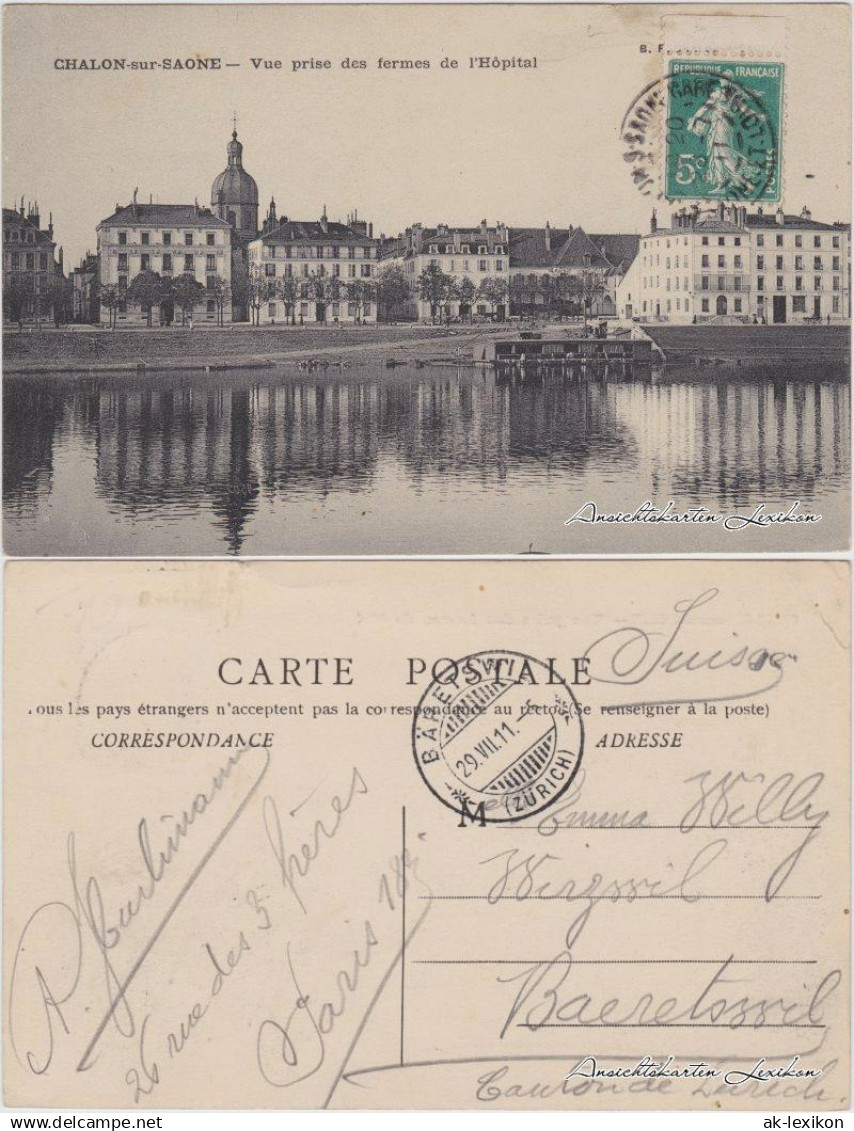 CHALON-sur-SAONE — Vue prise des fermes de l'Hôpital
B. F.
REPUBLIQUE FRANÇAISE
5c
POSTES
GARE
20
Ansichtskarten Lexikon
Suisse
CARTE POSTALE
Tous les pays étrangers n'acceptent pas la correspondance au recto (Se renseigner à la poste)
CORRESPONDANCE
ADRESSE
BÄRETSWIL
29.VII.11.
(ZÜRICH)
M elle Emma Willy
Wirzwil
Baeretswil
Canton de Zürich.
26 rue des 3 frères
Paris 18e
Ansichtskarten Lexikon
ak-lexikon